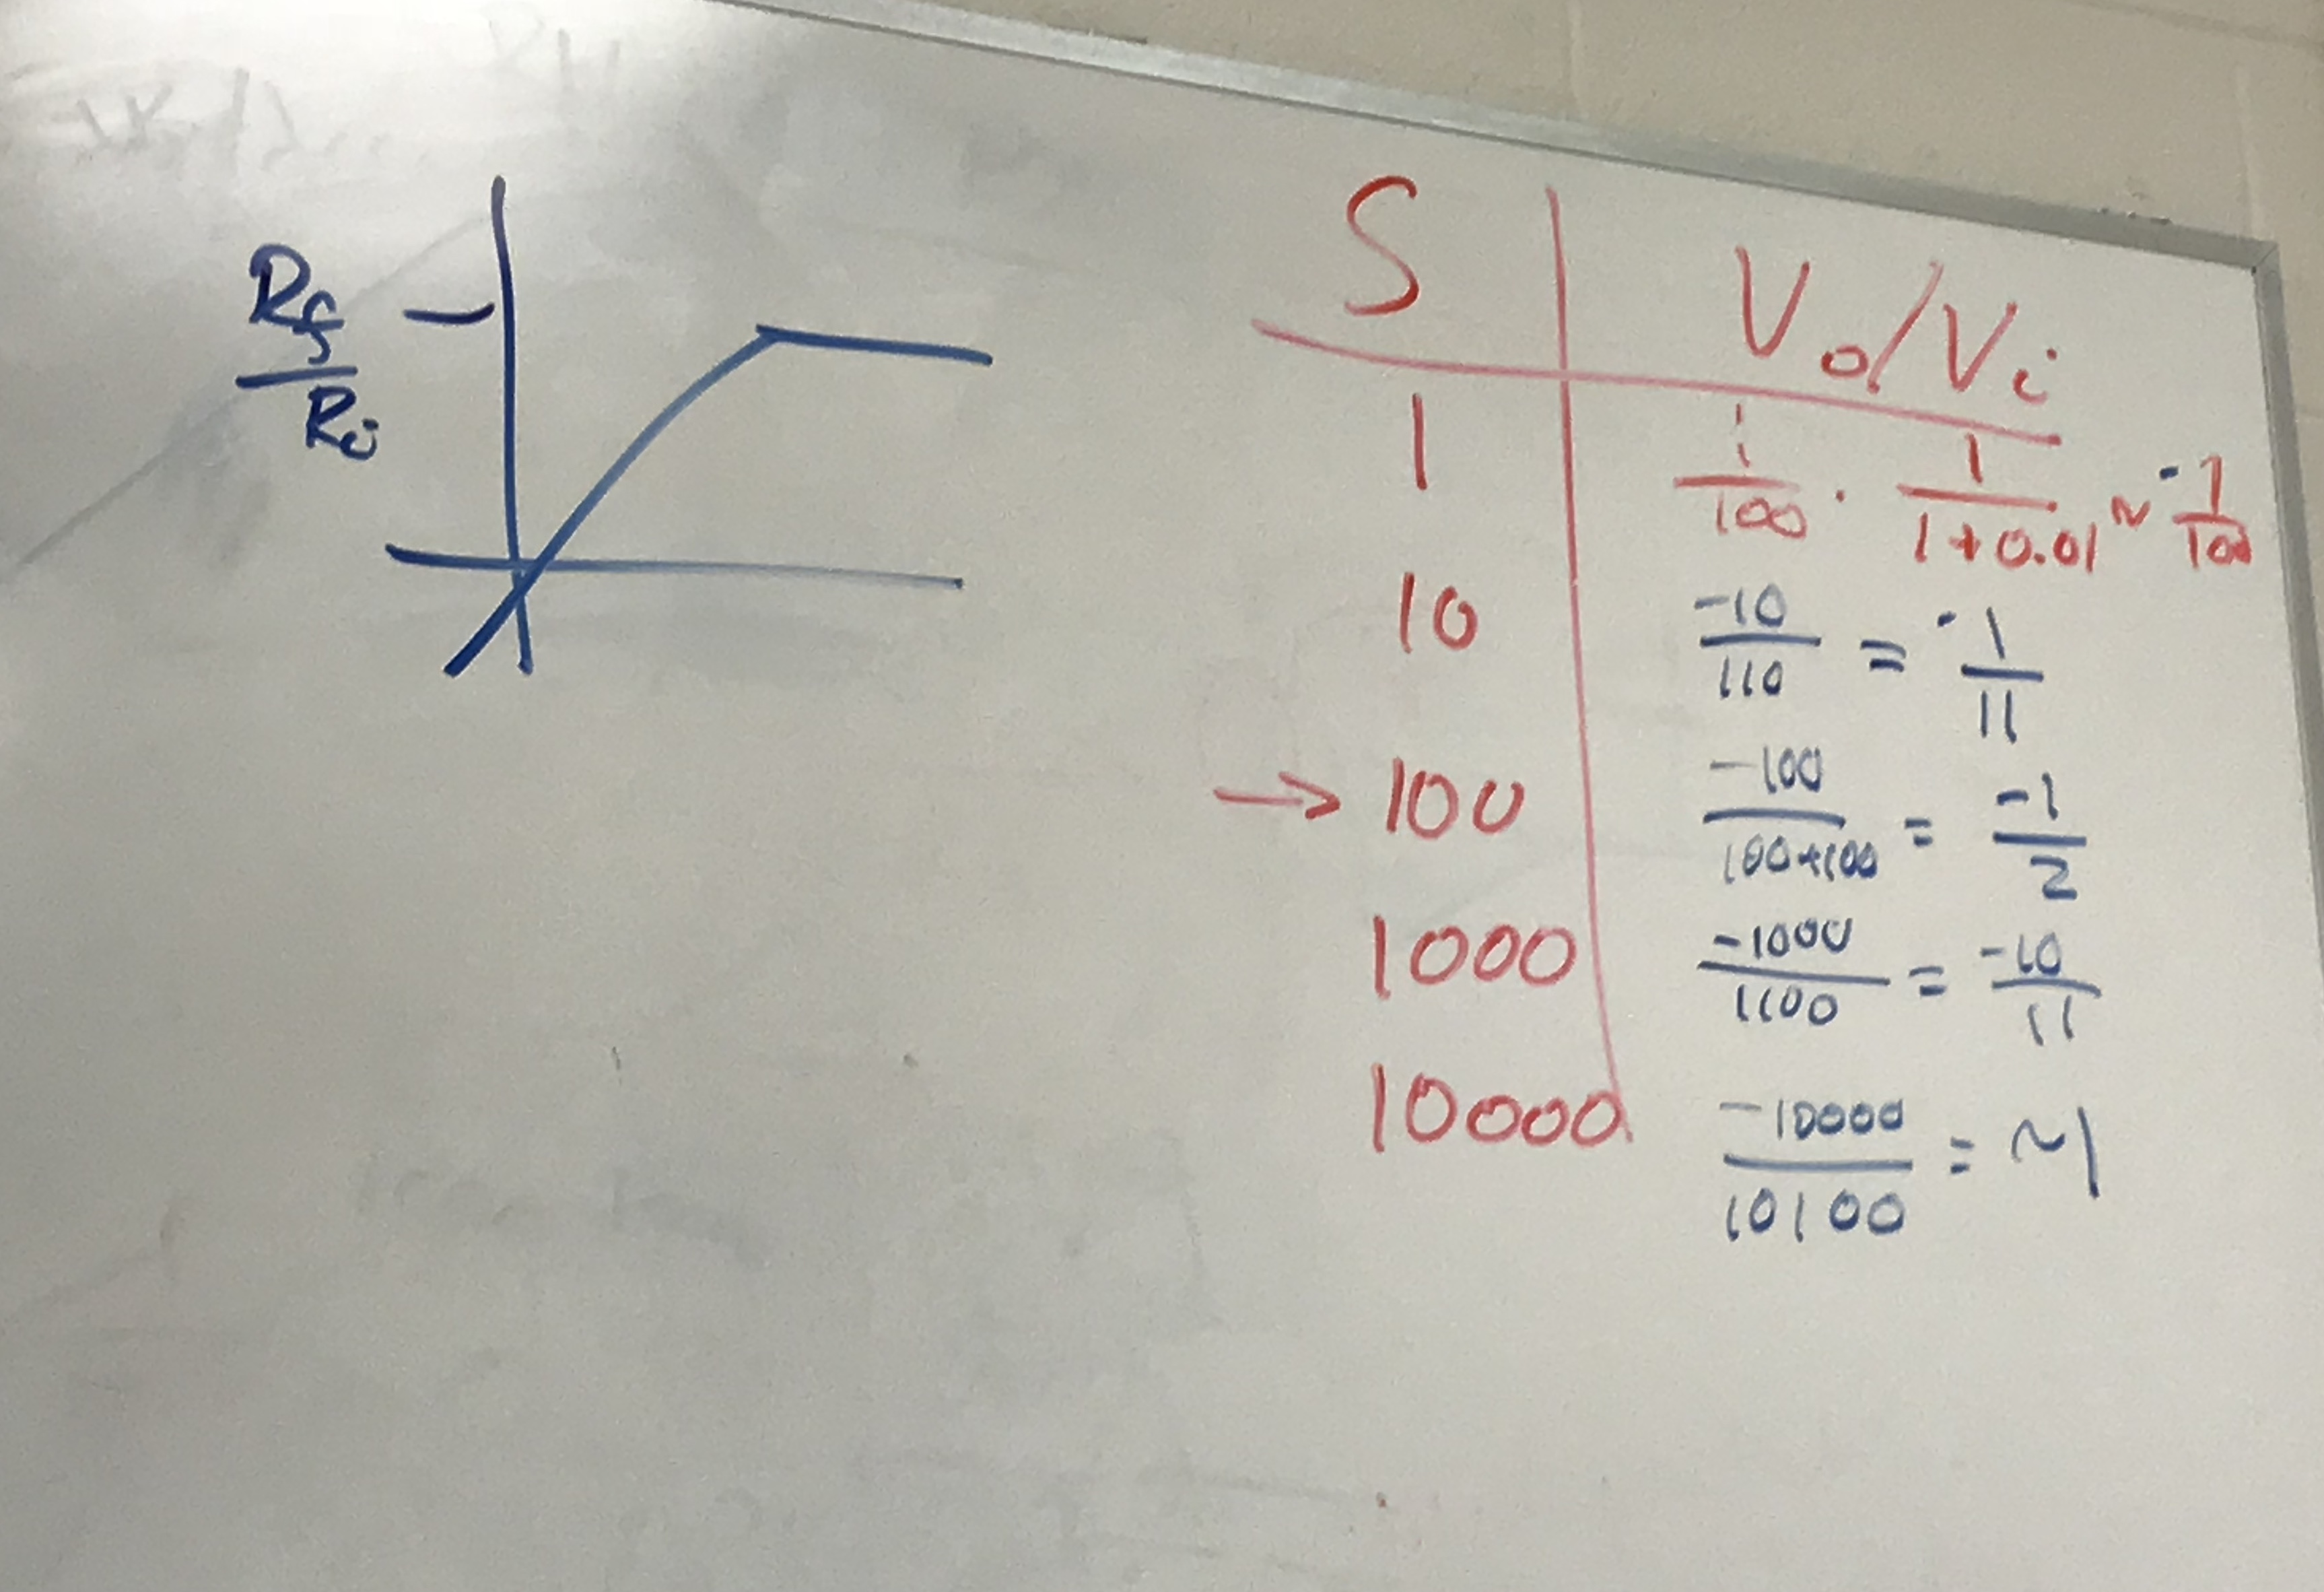 Rf
Ri
S | Vo/Vi
1 | 1/100 · 1/(1+0.01) ~ -1/100
10 | -10/110 = -1/11
→ 100 | -100/(100+100) = -1/2
1000 | -1000/1100 = -10/11
10000 | -10000/10100 = ~1